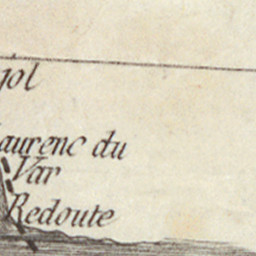 gol
aurenc du
Var
Redoute